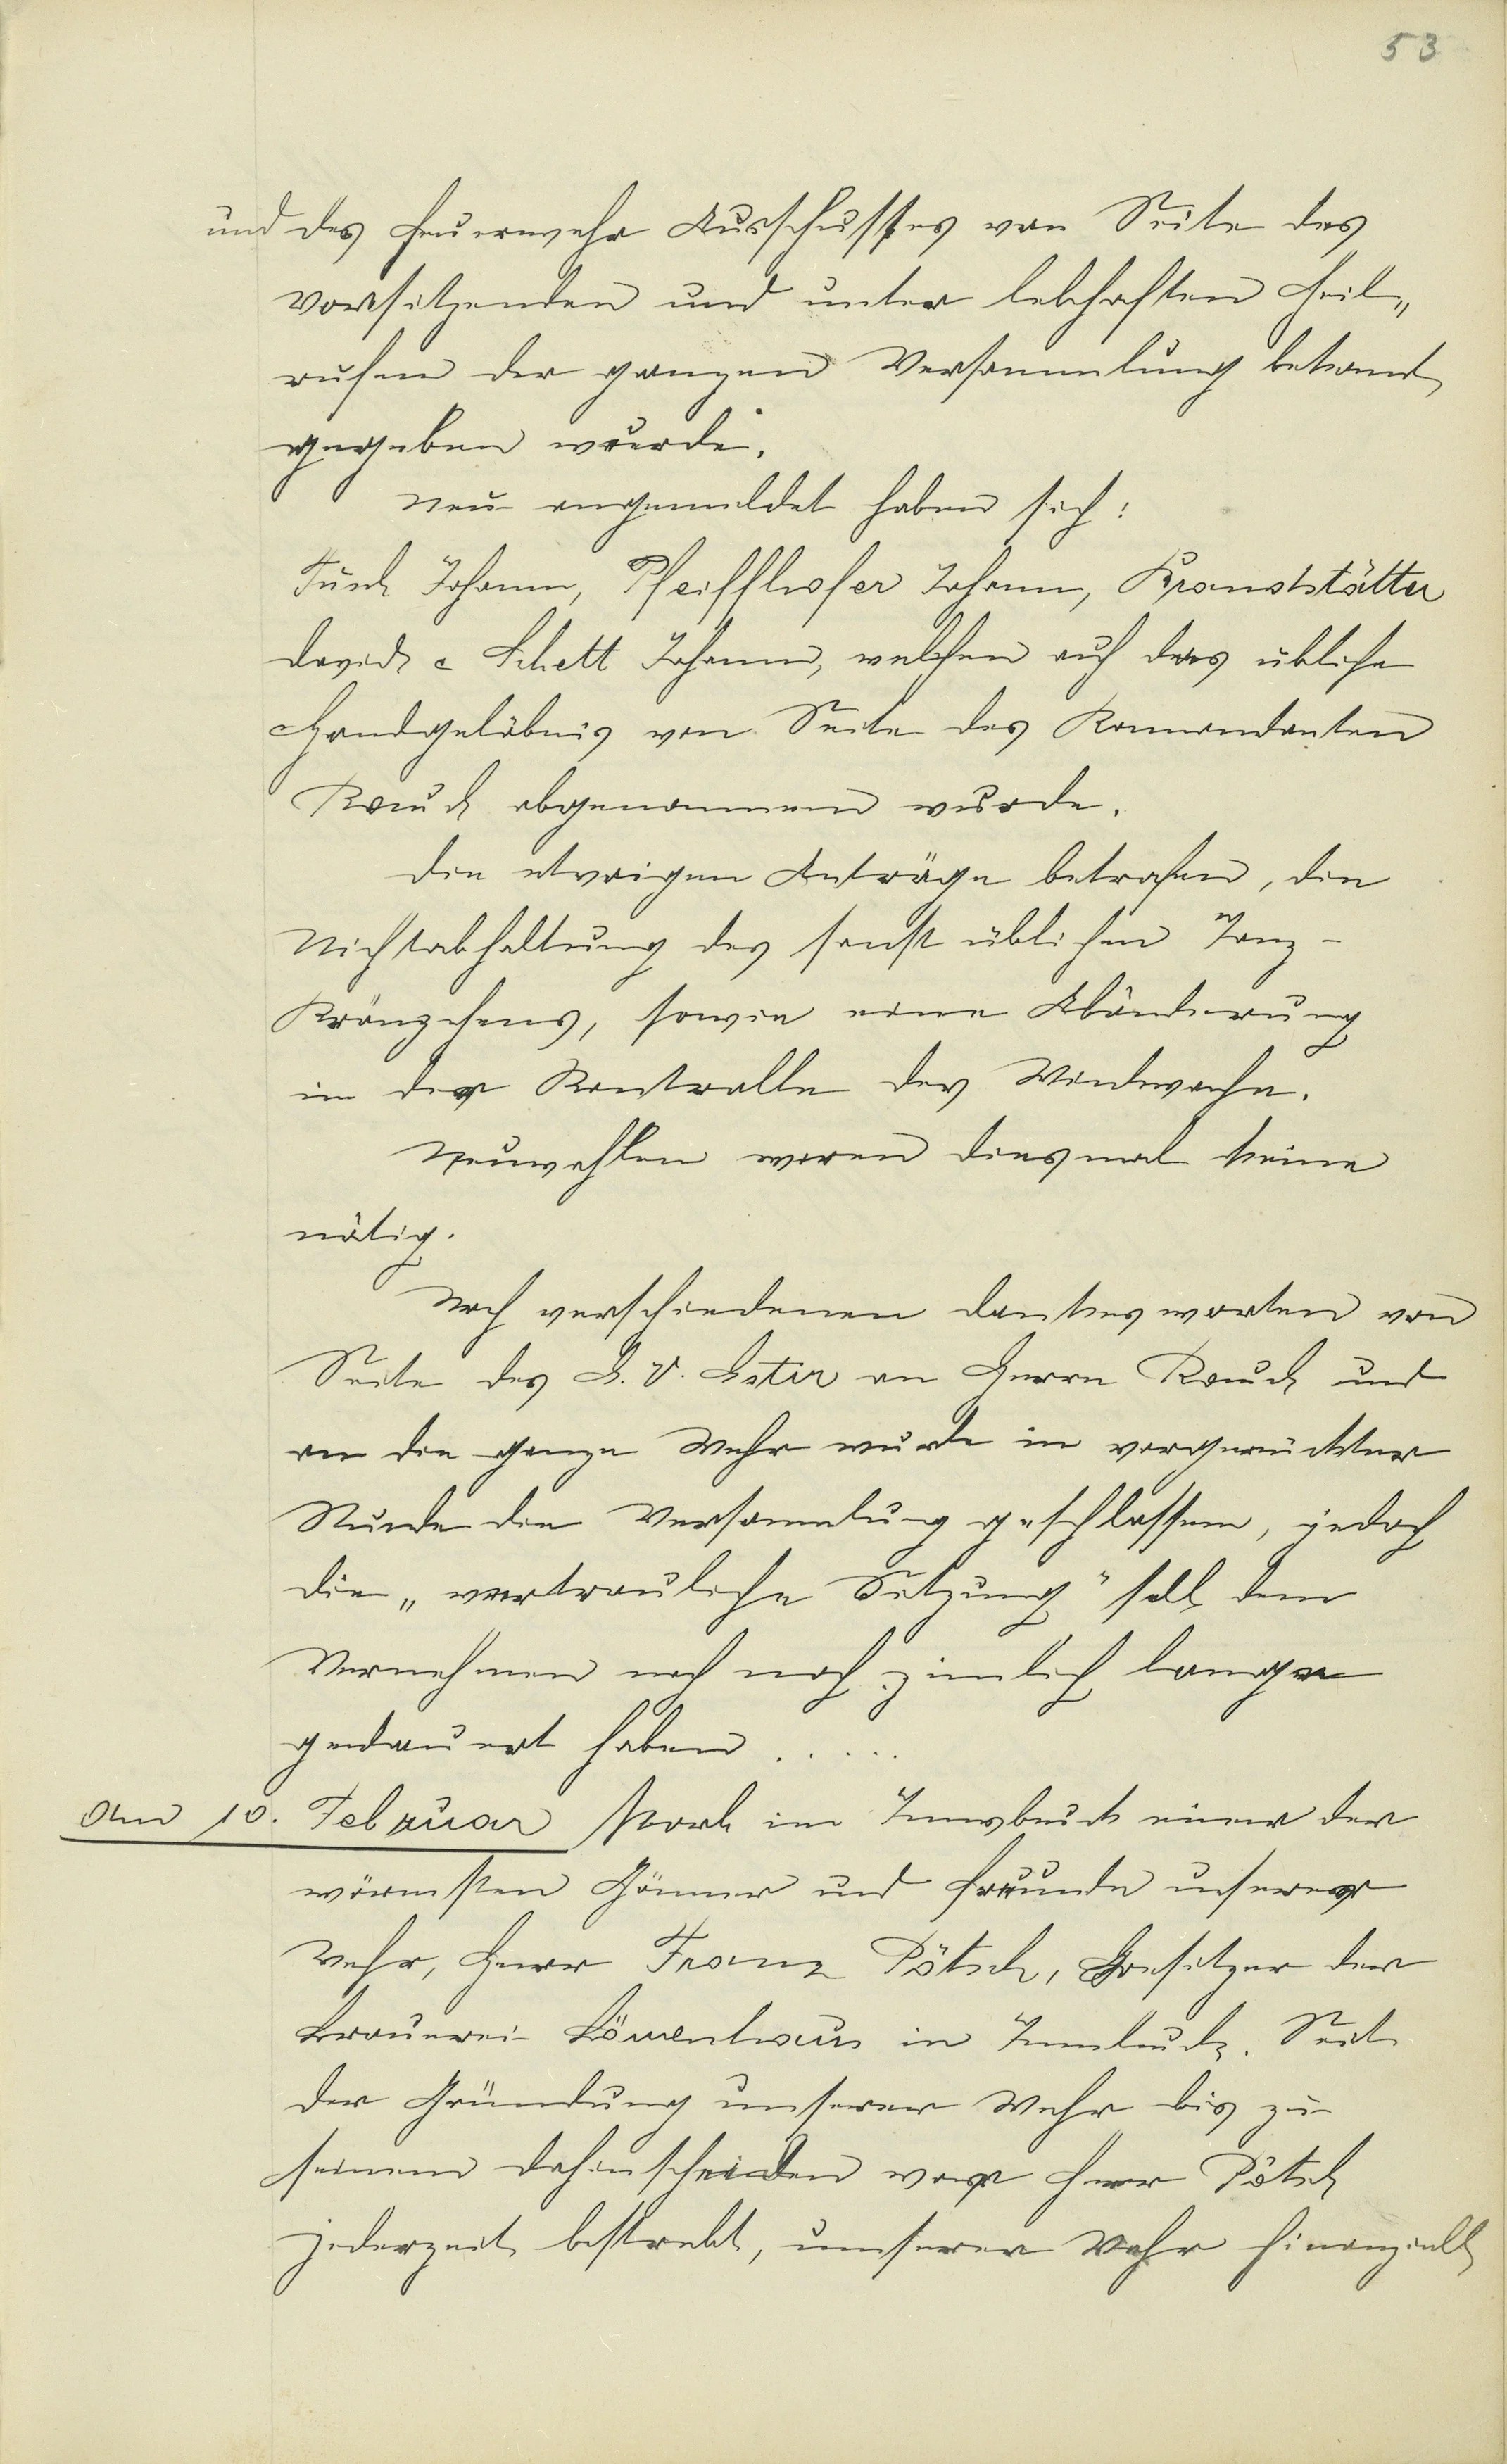 53
und des Feuerwehr Ausschusses von Seite des
Vorsitzenden und unter lebhaften Heil„
rufen der ganzen Versammlung bekannt
gegeben wurde.
Neu angemeldet haben sich:
Johann, Pfeifflhofer Johann, Kranststätter
David & Schett Johann, welchen auch das übliche
Handgelöbnis von Seite des Kommandanten
Rauch abgenommen wurde.
Die etwaigen Anträge betrafen, die
Nichtabhaltung des sonst üblichen Tanz-
Kränzchens, sowie eine Abänderung
in der Kontrolle der Windwache.
Neuwahlen waren diesmal keine
nötig.
Nach verschiedenen Dankesworten von
Seite des G. V. Ester an Herrn Rauch und
an die ganze Wehr wurde in vorgerückter
Stunde die Versammlung geschlossen, jedoch
die „vertrauliche Sitzung" soll dem
Vernehmen nach noch zimlich lange
gedauert haben . . . . .
Am 10. Februar starb in Innsbruck einer der
wärmsten Gönner und Freunde unserer
Wehr, Herr Franz Pötsch, Besitzer der
Brauerei Löwenhaus in Innbruck. Seit
der Gründung unserer Wehr bis zu
seinem Dahinscheiden war Herr Pötsch
jederzeit bestrebt, unserer Wehr finanziell